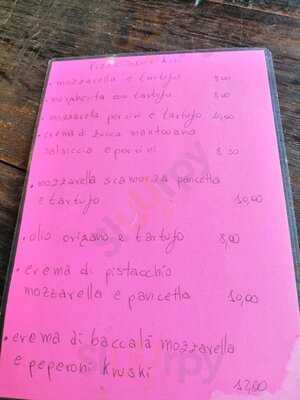 • mozzarella e tartufo 9,00
• margherita con tartufo 8,00
• mozzarella porcini e tartufo 10,00
• crema di zucca mantovana
salsiccia e porcini 8,50
• mozzarella scamorza pancetta
e tartufo 10,00
• olio origano e tartufo 8,00
• crema di pistacchio
mozzarella e pancetta 10,00
• crema di baccalà mozzarella
e peperoni kruski 12,00